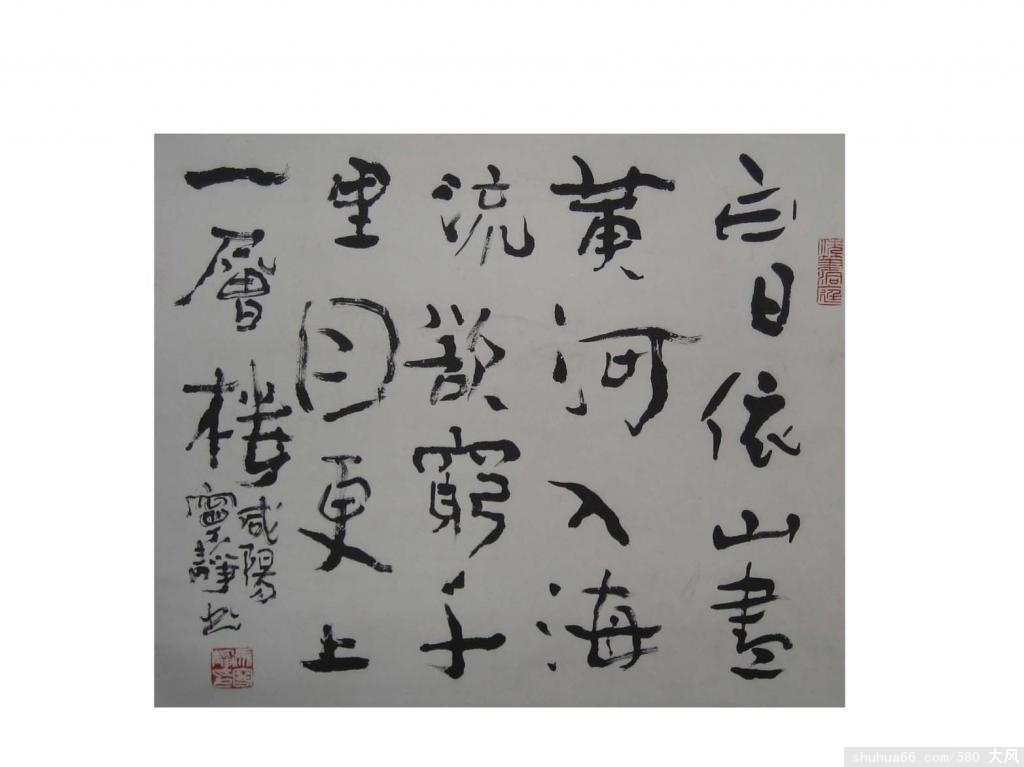 白日依山盡
黄河入海
流欲窮千
里目更上
一層樓
咸陽
靜书
shuhua66.com/580 大风